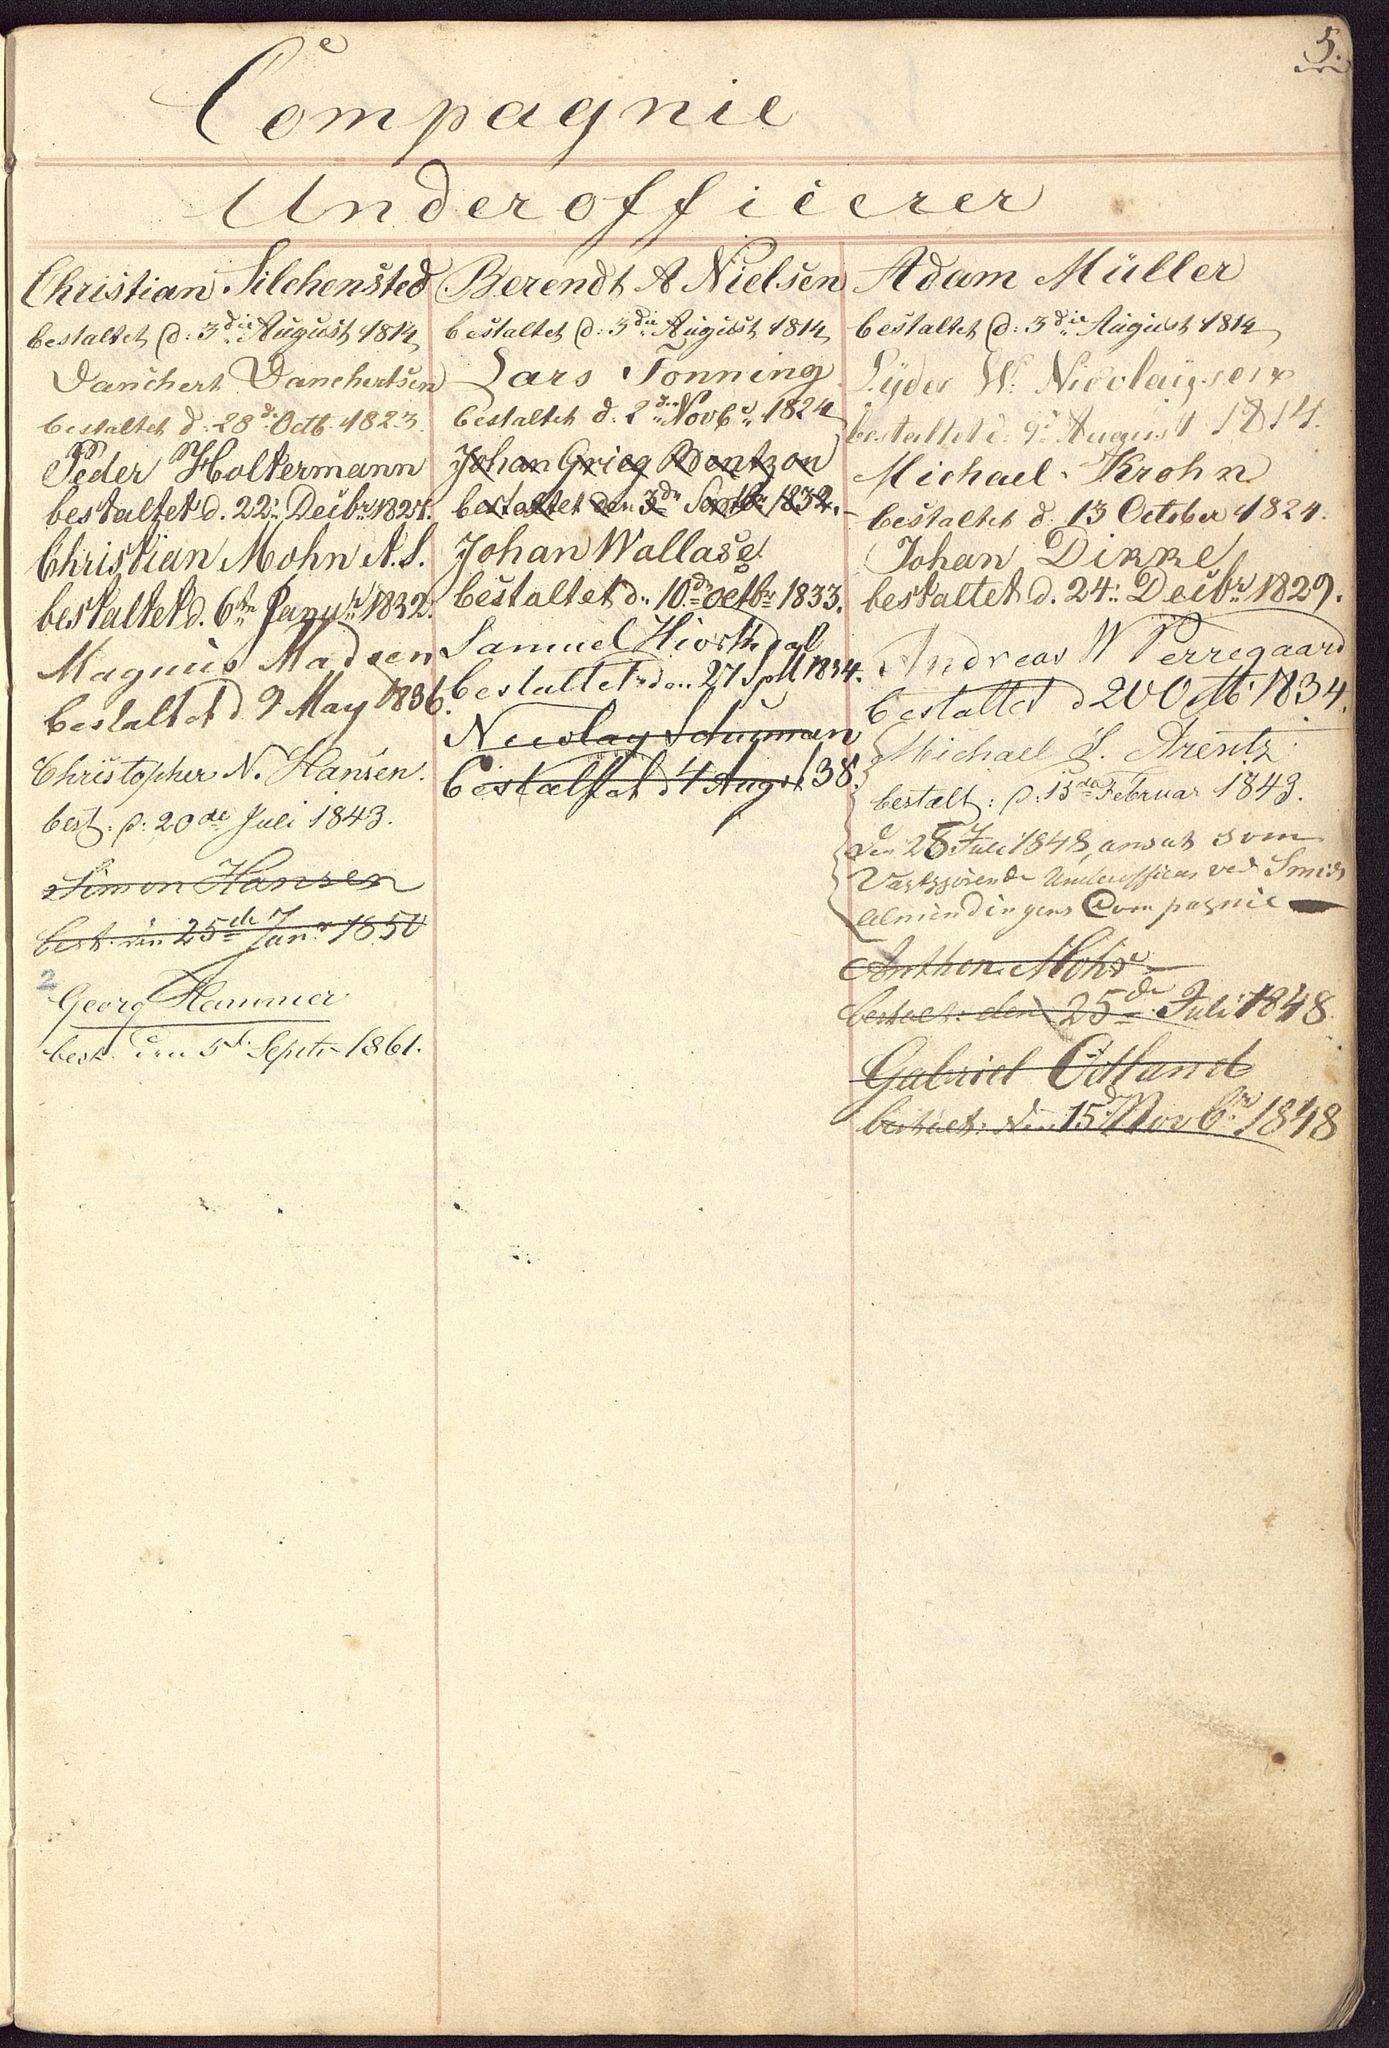 5.
Compagnie
Underofficerer
Christian Silchensted
bestaltet d: 3die August 1814
Danchert Danchertsen
bestaltet d: 28de Octb. 1823.
Peder Holtermann
bestaltet d. 22: Decbr
Christian Mohn A.S.
bestaltet d. 6te Januar 1832.
Magnus Madsen
bestaltet d 9 May 1836.
Christopher N. Hansen.
best: d: 20de Juli 1843.
Simon Hansen
best. den 25de Janr 1850
2
Georg Hammer
best. den 5t Septr 1861.
Berendt A Nielsen
bestaltet d: 3die August 1814
Lars Tønning
bestaltet d. 2den Novbr 1824
Johan Grieg Rentzon
bestaltet den 3die Septbr 1832.
Johan Wallase
bestaltet dn 10de octbr 1833.
Samuel Hiorthdal
bestaltet den 27 Sptb 1834.
Nicolay
bestaltet d 4 August 38.
Adam Müller
bestaltet d: 3die August 1814
Lyder W. Nicolaysen
bestaltet d: 9de August 1814.
Michael Krohn
bestaltet d. 13 October 1824.
Johan Dikke
bestaltet d. 24: Decbr 1829.
Andreas W Perregaard
bestaltet d 20 Octb. 1834.
Michael S. Arentz.
bestalt: d: 15de Februar 1843.
Den 28 Juli 1848, ansat som
Vagtgjørende Underofficer ved Smids
Almendingens Compagnie
Anthon Mohr
bestalt: den 25de Juli 1848.
Gabriel Ødland
bestalt: den 15d Novbr 1848